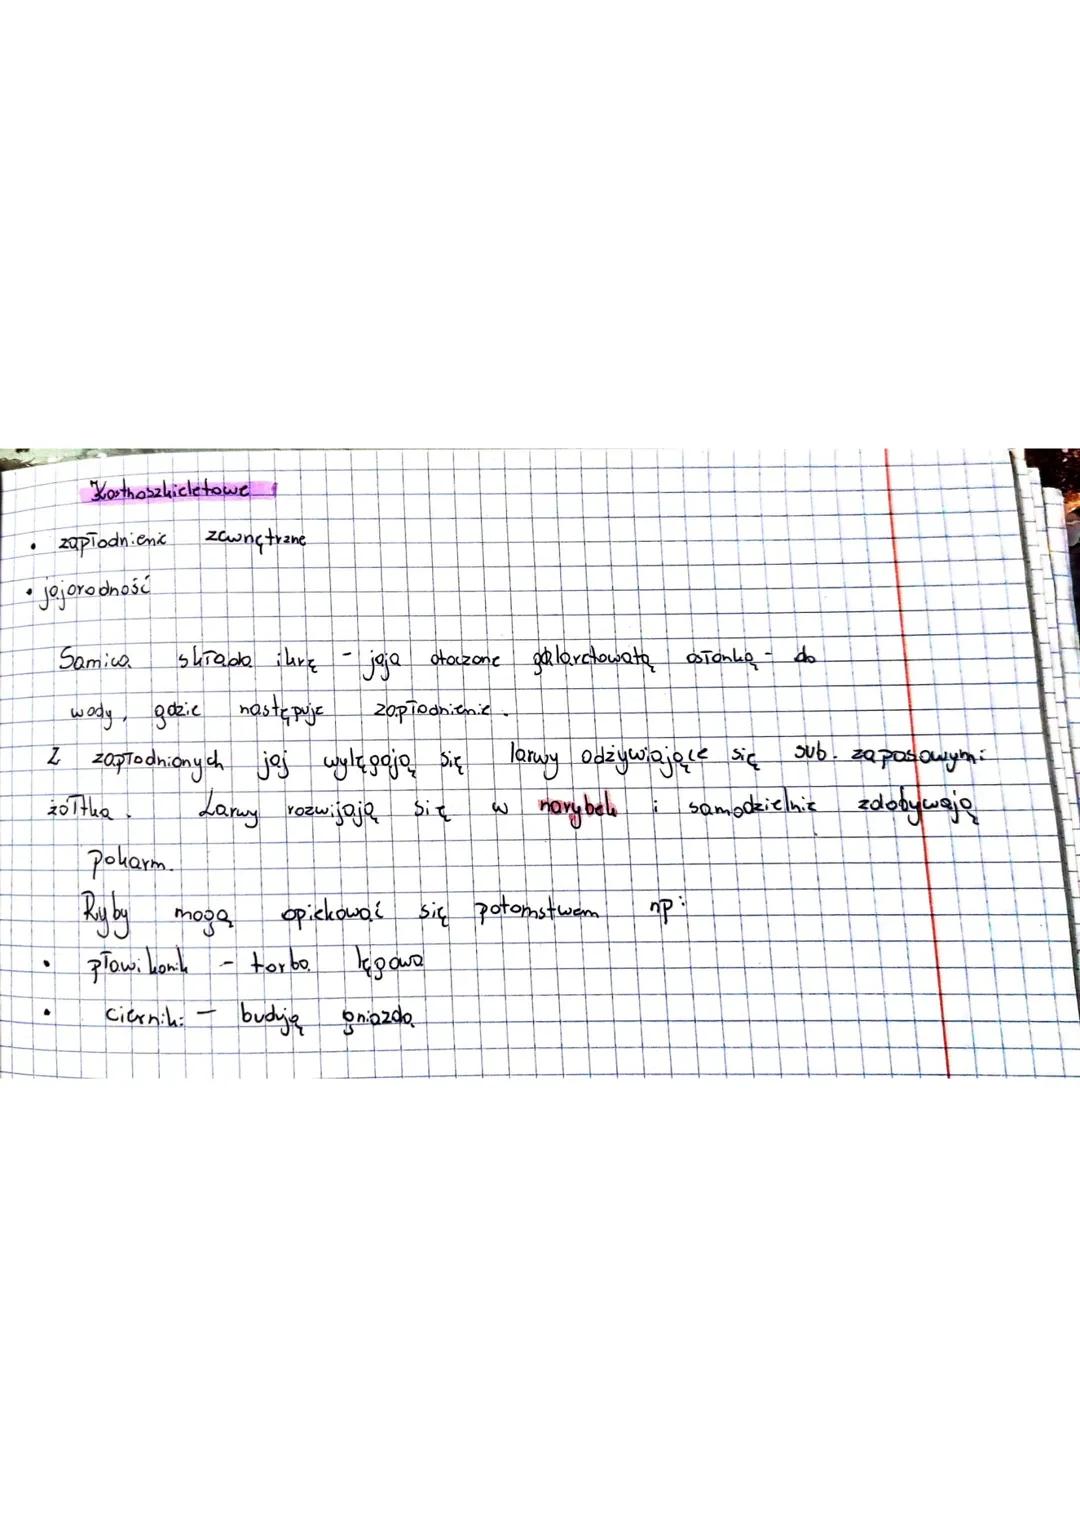 Kostnoszkieletowe
• zapłodnienie zewnętrzne
• jajorodność
Samica składa ikrę - jaja otoczone galaretowatą osłonką - do
wody, gdzie następuje zapłodnienie.
Z zapłodnionych jaj wylęgają się larwy odżywiające się sub. zapasowymi
żółtka. Larwy rozwijają się w narybek i samodzielnie zdobywają
pokarm.
Ryby mogą opiekować się potomstwem np:
• pławikonik - torba lęgowa
• cierniki - budują gniazda